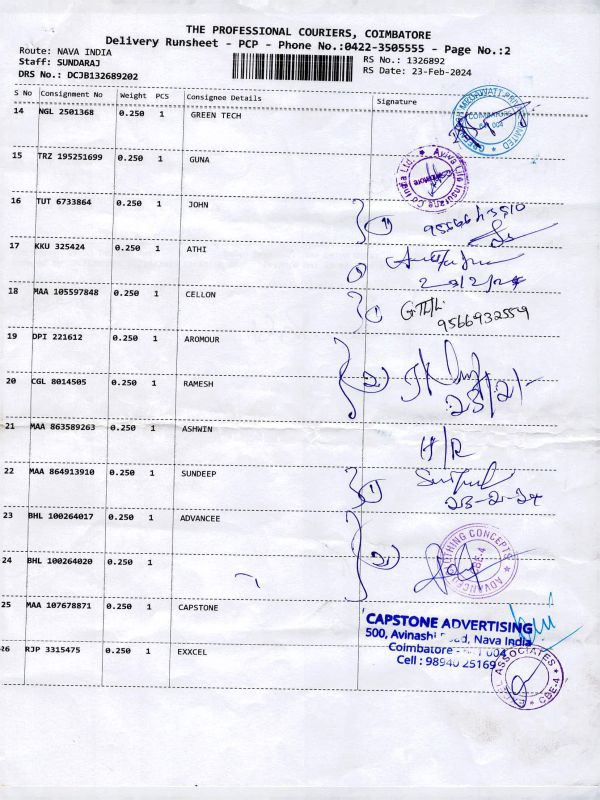 THE PROFESSIONAL COURIERS, COIMBATORE
Delivery Runsheet - PCP - Phone No.:0422-3505555 - Page No.:2
Route: NAVA INDIA
Staff: SUNDARAJ
DRS No.: DCJB132689202
RS No.: 1326892
RS Date: 23-Feb-2024
S No Consignment No Weight PCS Consignee Details Signature
14 NGL 2501368 0.250 1 GREEN TECH
COIMBATORE
LIMITED
15 TRZ 195251699 0.250 1 GUNA
Aviva Life Insurance Co India Ltd.
Coimbatore
16 TUT 6733864 0.250 1 JOHN
1
17 KKU 325424 0.250 1 ATHI
18 MAA 105597848 0.250 1 CELLON
1
9566932559
19 DPI 221612 0.250 1 AROMOUR
20 CGL 8014505 0.250 1 RAMESH
2
23/2/-
21 MAA 863589263 0.250 1 ASHWIN
H/R
22 MAA 864913910 0.250 1 SUNDEEP
1
23-2-24
23 BHL 100264017 0.250 1 ADVANCEE
24 BHL 100264020 0.250 1
2
CONCEPTS
CBE-4
25 MAA 107678871 0.250 1 CAPSTONE
CAPSTONE ADVERTISING
500, Avinashi Road, Nava India
Coimbatore - 641 004
Cell : 98940 25169
26 RJP 3315475 0.250 1 EXXCEL
ASSOCIATES
CBE-4